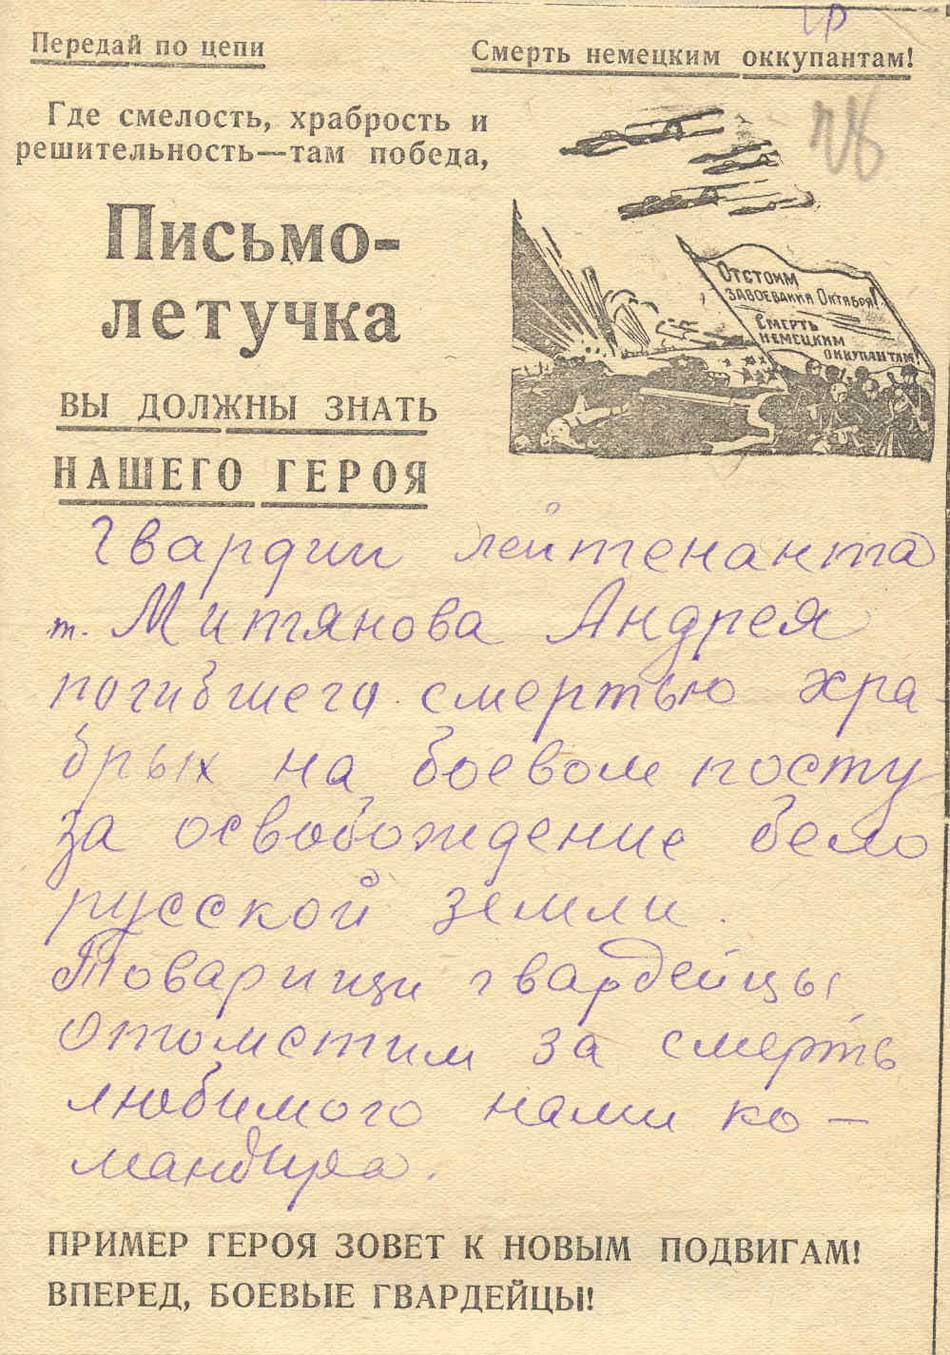 Передай по цепи
Смерть немецким оккупантам!
Где смелость, храбрость и
решительность—там победа,
Письмо-
летучка
ВЫ ДОЛЖНЫ ЗНАТЬ
НАШЕГО ГЕРОЯ
Отстоим
завоевания Октября!
Смерть
немецким
оккупантам!
Гвардии лейтенанта
т. Митянова Андрея
погибшего смертью хра
брых на боевом посту
за освобождение бело
русской земли.
Товарищи гвардейцы
отомстим за смерть
любимого нами ко—
мандира.
ПРИМЕР ГЕРОЯ ЗОВЕТ К НОВЫМ ПОДВИГАМ!
ВПЕРЕД, БОЕВЫЕ ГВАРДЕЙЦЫ!